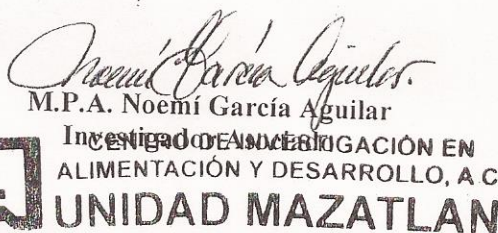 Noemí García Aguilar.
M.P.A. Noemí García Aguilar
Investigador Asociado
CENTRO DE INVESTIGACIÓN EN
ALIMENTACIÓN Y DESARROLLO, A.C
UNIDAD MAZATLAN